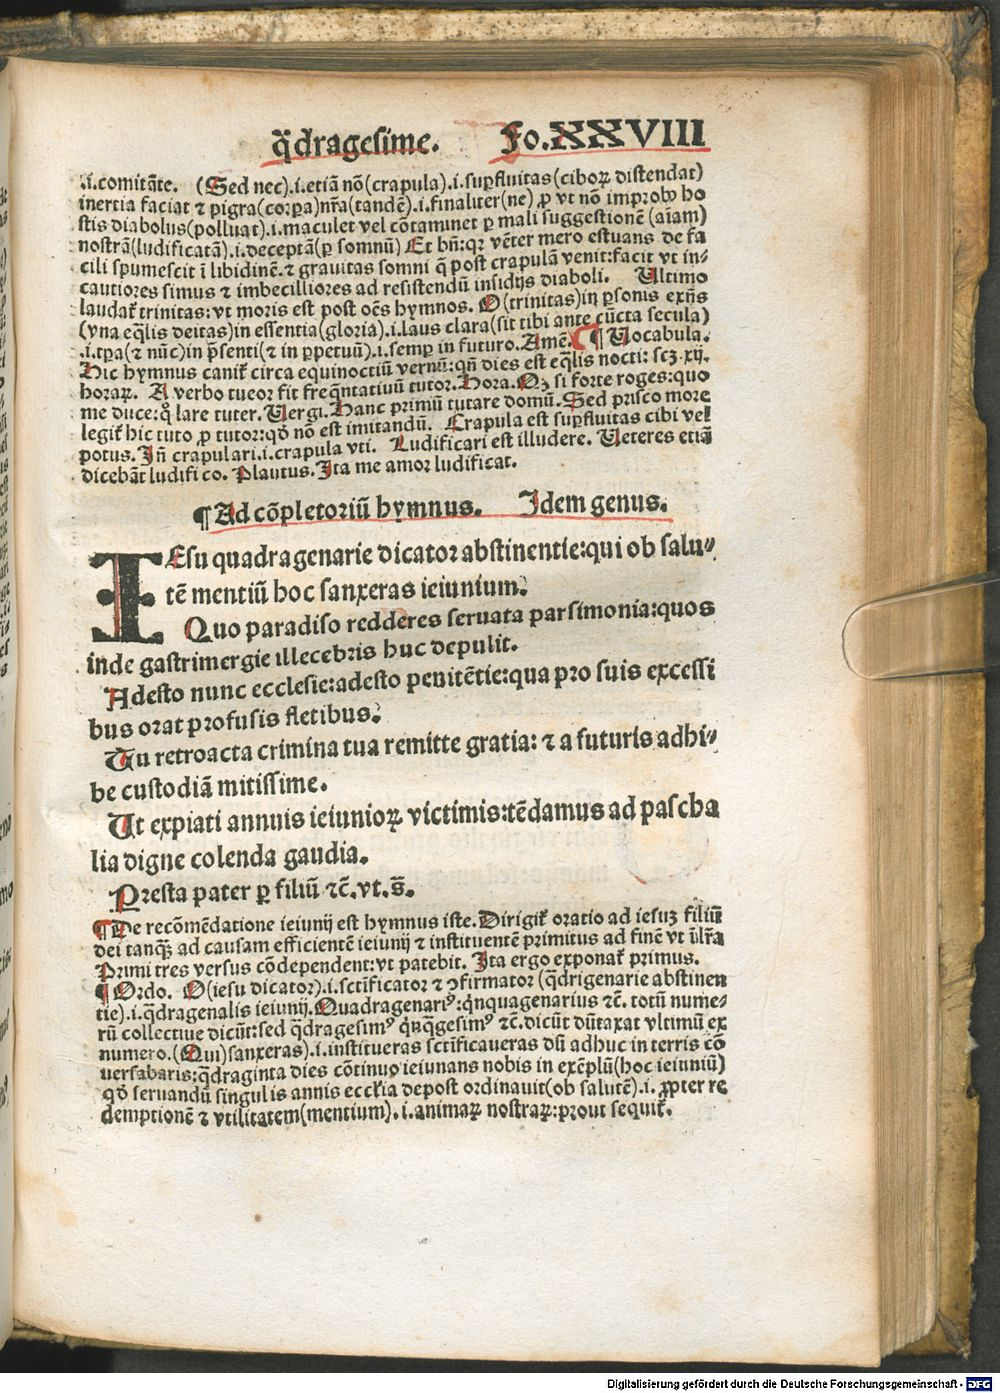 q̄dragesime. Fo.XXVIII
.i.comitāte. (Sed nec).i.etiā nō(crapula).i.suꝑfluitas(ciboꝝ distendat)
inertia faciat ⁊ pigra(corꝑa)nr̄a(tandē).i.finaliter(ne) ꝓ vt nō improbꝰ ho
stis diabolus(polluat).i.maculet vel cōtaminet ꝑ mali suggestionē (aīam)
nostrā(ludificatā).i.deceptā(ꝑ somnū) Et bn̄:qꝛ vēter mero estuans de fa
cili spumescit ī libidinē.⁊ grauitas somni q̄ post crapulā venit:facit vt in-
cautiores simus ⁊ imbecilliores ad resistendū insidijs diaboli. Ultimo
laudat̄ trinitas:vt moris est post oēs hymnos. O(trinitas)in ꝑsonis exn̄s
(vna eq̄lis deitas)in essentia(gloria).i.laus clara(sit tibi ante cūcta secula)
.i.tꝑa(⁊ nūc)in p̄senti(⁊ in ꝑpetuū).i.semꝑ in futuro.Amē. ¶ Uocabula.
Hic hymnus canit̄ circa equinoctiū vernū:qn̄ dies est eq̄lis nocti: scꝫ xij.
horaꝝ. A verbo tueor fit freq̄ntatiuū tutor.Hora.Qꝫ si forte roges:quo
me duce:q̊ lare tuter.Uergi.Hanc primū tutare domū.Sed prisco more
legit̄ hic tuto ꝓ tutor:qd̄ nō est imitandū. Crapula est suꝑfluitas cibi vel
potus.In̄ crapulari.i.crapula vti. Ludificari est illudere. Ueteres etiā
dicebāt ludifico. Plautus.Ita me amor ludificat.
¶Ad cōpletoriū hymnus. Idem genus.
IEsu quadragenarie dicator abstinentie:qui ob salu-
tē mentiū hoc sanxeras ieiunium.
Quo paradiso redderes seruata parsimonia:quos
inde gastrimergie illecebris huc depulit.
Adesto nunc ecclesie:adesto penitētie:qua pro suis excessi
bus orat profusis fletibus.
Tu retroacta crimina tua remitte gratia: ⁊ a futuris adhi-
be custodiā mitissime.
Ut expiati annuis ieiunioꝝ victimis:tēdamus ad pascha
lia digne colenda gaudia.
Presta pater ꝑ filiū ⁊c̄.vt.s̄.
¶De recōmēdatione ieiunij est hymnus iste.Dirigit̄ oratio ad iesuꝫ filiū
dei tanqꝫ ad causam efficientē ieiunij ⁊ instituentē primitus ad finē vt īlr̄a
Primi tres versus cōdependent:vt patebit. Ita ergo exponat̄ primus.
¶Ordo. O(iesu dicator).i.sctificator ⁊ ꝯfirmator (q̄drigenarie abstinen
tie).i.q̄dragenalis ieiunij.Quadragenariꝰ:qͥnquagenarius ⁊c̄. totū nume-
rū collectiue dicūt:sed q̄dragesimꝰ qͥnq̄gesimꝰ ⁊c̄.dicūt dūtaxat vltimū ex
numero.(Qui)sanxeras).i.institueras sctificaueras dū adhuc in terris cō
uersabaris:q̄draginta dies cōtinuo ieiunans nobis in exēplū(hoc ieiuniū)
qd̄ seruandū singulis annis ecclīa depost ordinauit(ob salutē).i. ꝓpter re
demptionē ⁊ vtilitatem(mentium).i.animaꝝ nostraꝝ:prout sequit̄.
Digitalisierung gefördert durch die Deutsche Forschungsgemeinschaft - DFG